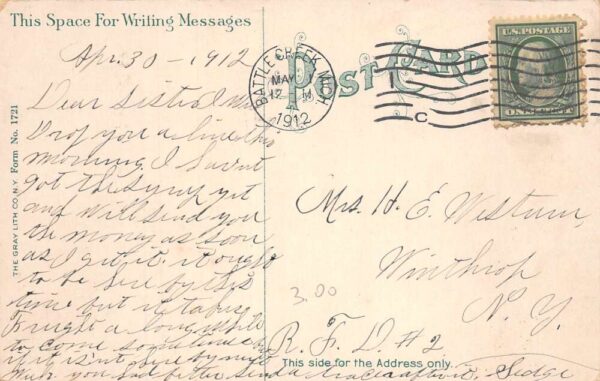 This Space For Writing Messages
POST CARD
U.S. POSTAGE
BATTLE CREEK, MICH.
MAY 1
12 M
1912
C
THE GRAY LITH CO. N.Y. Form No. 1721
Apr. 30 - 1912
Dear Sister I
Drop you a line this
morning. I havnt
got the syrup yet
and will send you
the money as soon
as I get it. it ought
to be here by this
time but it takes
Freight a long while
to come sometime
if it isn't here by
you had better send a
Mrs. H. E. Westurn,
Winthrop
N. Y.
R. F. D #2
3.00
This side for the Address only.